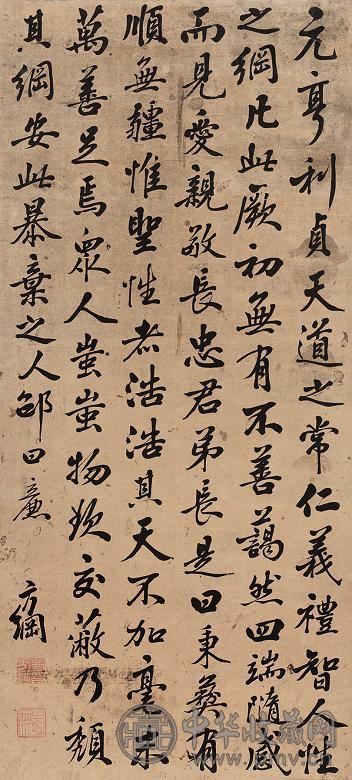 元亨利貞天道之常仁義禮智人性
之綱凡此厥初無有不善藹然四端隨感
而見愛親敬長忠君弟長是曰秉彝有
順無疆惟聖性者浩浩其天不加毫末
萬善足焉眾人蚩蚩物欲交蔽乃頹
其綱安此暴棄之人邵曰廉
方綱
中华收藏网